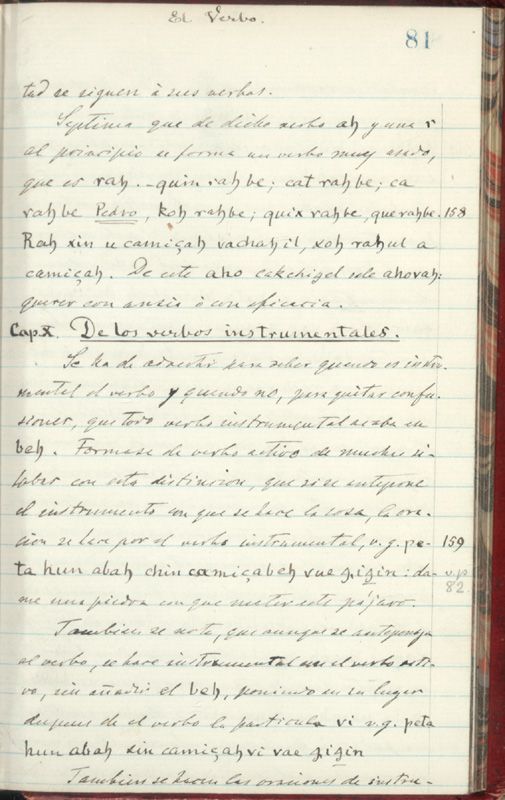 El Verbo.
81
tad se siguen à sus verbos.
Septima que de dicho verbo ah y una r
al principio se forma un verbo muy usado,
que es rah. - quin rahbe; cat rahbe; ca
rahbe Pedro, koh rahbe; quix rahbe, que rahbe. 158
Rah xin u camiçah vachah il, xoh rahul a
camiçah. De este aho cakchigel sale ahovah:
querer con ansia ò con eficacia.
Cap. X. De los verbos instrumentales.
Se ha de advertir para saber quando es instru-
mental el verbo y quando no, para quitar confu-
siones, que todo verbo instrumental acaba en
beh. Formase de verbo activo de muchas si-
labas con esta distincion, que si se antepone
el instrumento con que se hace la cosa, la ora-
cion se hace por el verbo instrumental, v.g. pe- 159
ta hun abah chin camiçabeh vae : da- v.p.
me una piedra con que matar este pájaro. 82
Tambien se note, que aunque se anteponga
al verbo, se hace instrumental en el verbo acti-
vo, sin añadir el beh, poniendo en su lugar
despues de el verbo la particula vi v.g. peta
hun abah xin camiçah vi vae
Tambien se hacen las oraciones de instru-